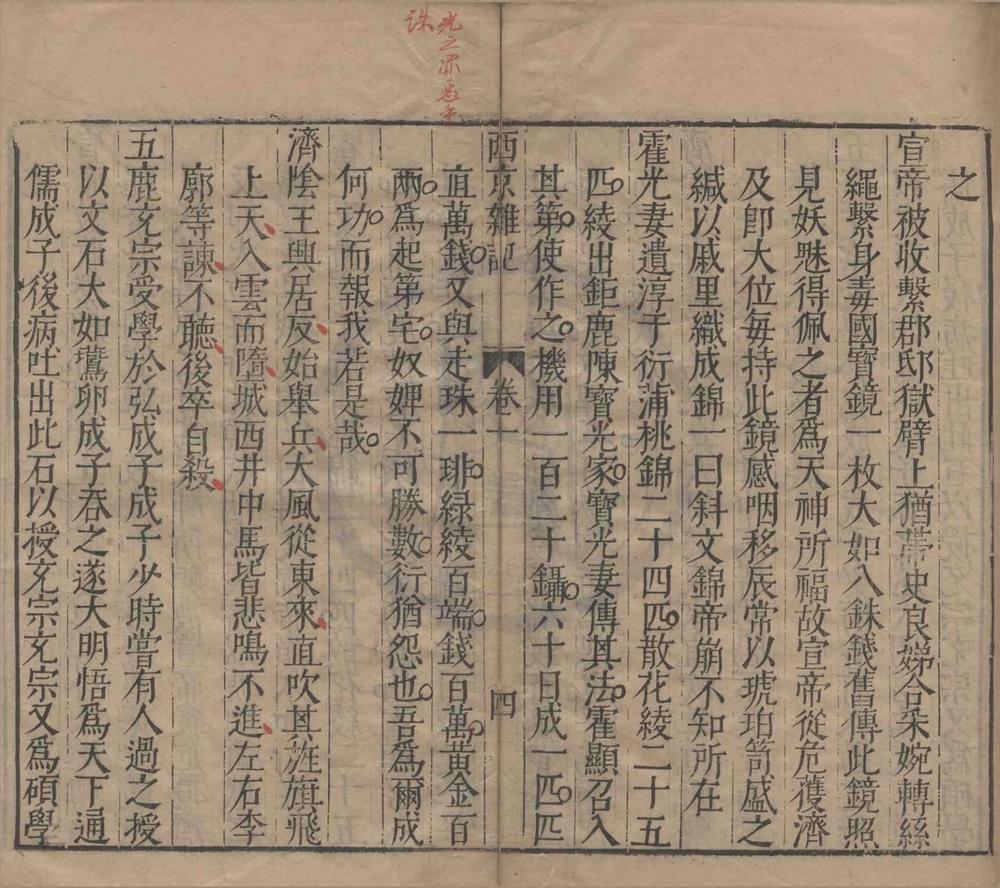 之
宣帝被收繫郡邸獄臂上猶帶史良娣合采婉轉絲
繩繫身毒國寶鏡一枚大如八銖錢舊傳此鏡照
見妖魅得佩之者爲天神所福故宣帝從危獲濟
及即大位每持此鏡感咽移辰常以琥珀笥盛之
緘以戚里織成錦一曰斜文錦帝崩不知所在
霍光妻遺淳于衍蒲桃錦二十四匹散花綾二十五
匹綾出鉅鹿陳寶光家寶光妻傳其法霍顯召入
其第使作之機用一百二十鑷六十日成一匹匹
西京雜記 卷一 四
直萬錢又與走珠一琲綠綾百端錢百萬黃金百
兩爲起第宅奴婢不可勝數衍猶怨也吾爲爾成
何功而報我若是哉
濟陰王興居反始舉兵大風從東來直吹其旌旗飛
上天入雲而墮城西井中馬皆悲鳴不進左右李
廓等諫不聽後卒自殺
五鹿充宗受學於弘成子成子少時嘗有人過之授
以文石大如鷰卵成子吞之遂大明悟爲天下通
儒成子後病吐出此石以授充宗充宗又爲碩學
光之罪惡年
誅